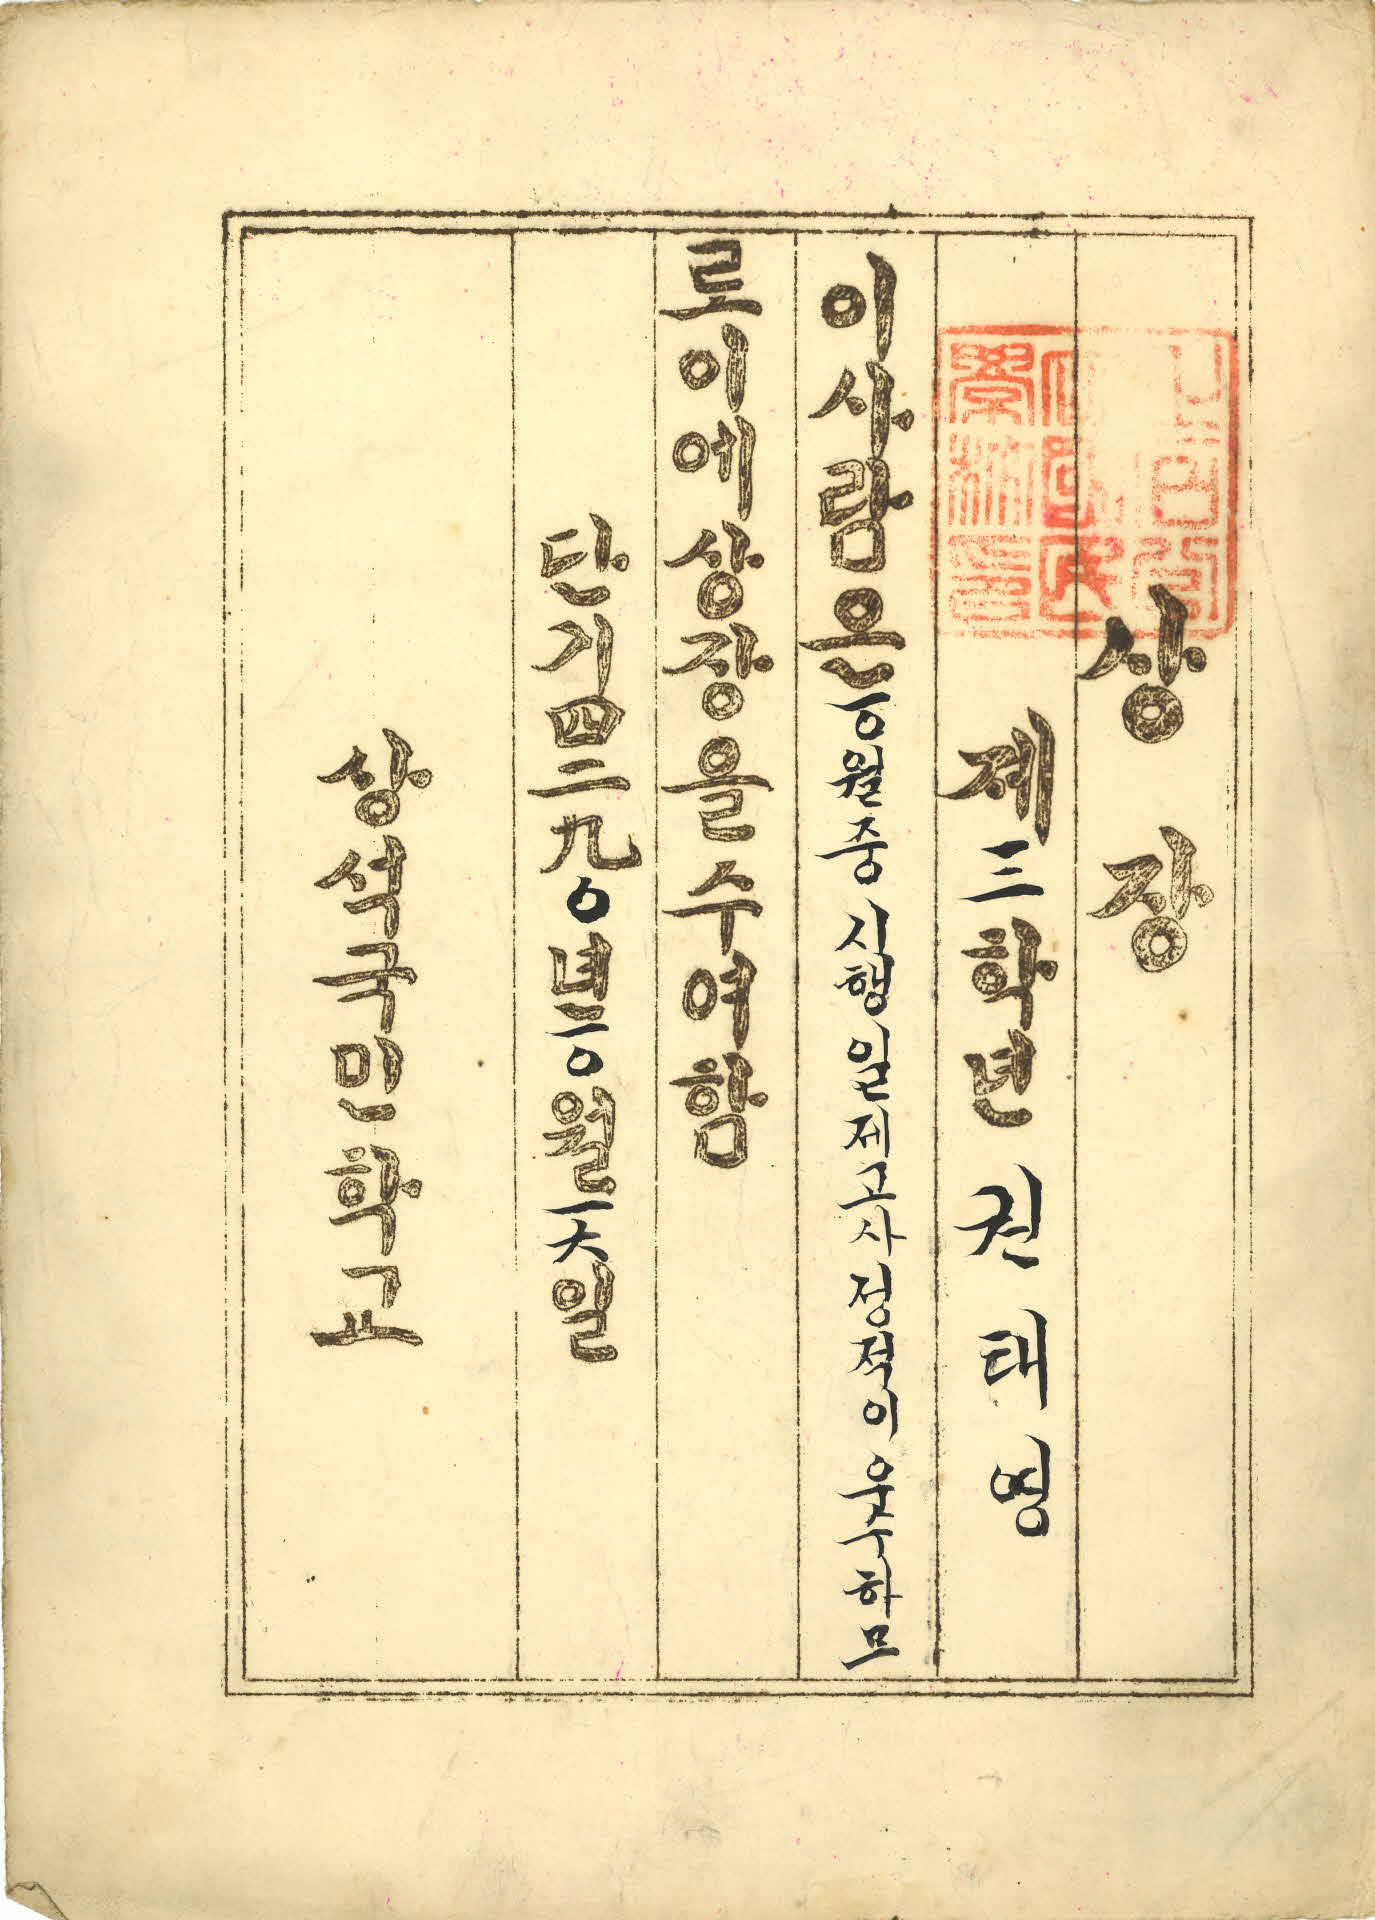 상장
제三학년 권태영
이사람은 一○월중 시행 일제고사 성적이 우수하므
로이에상장을수여함
단기四二九○년一○월一六일
상석국민학교